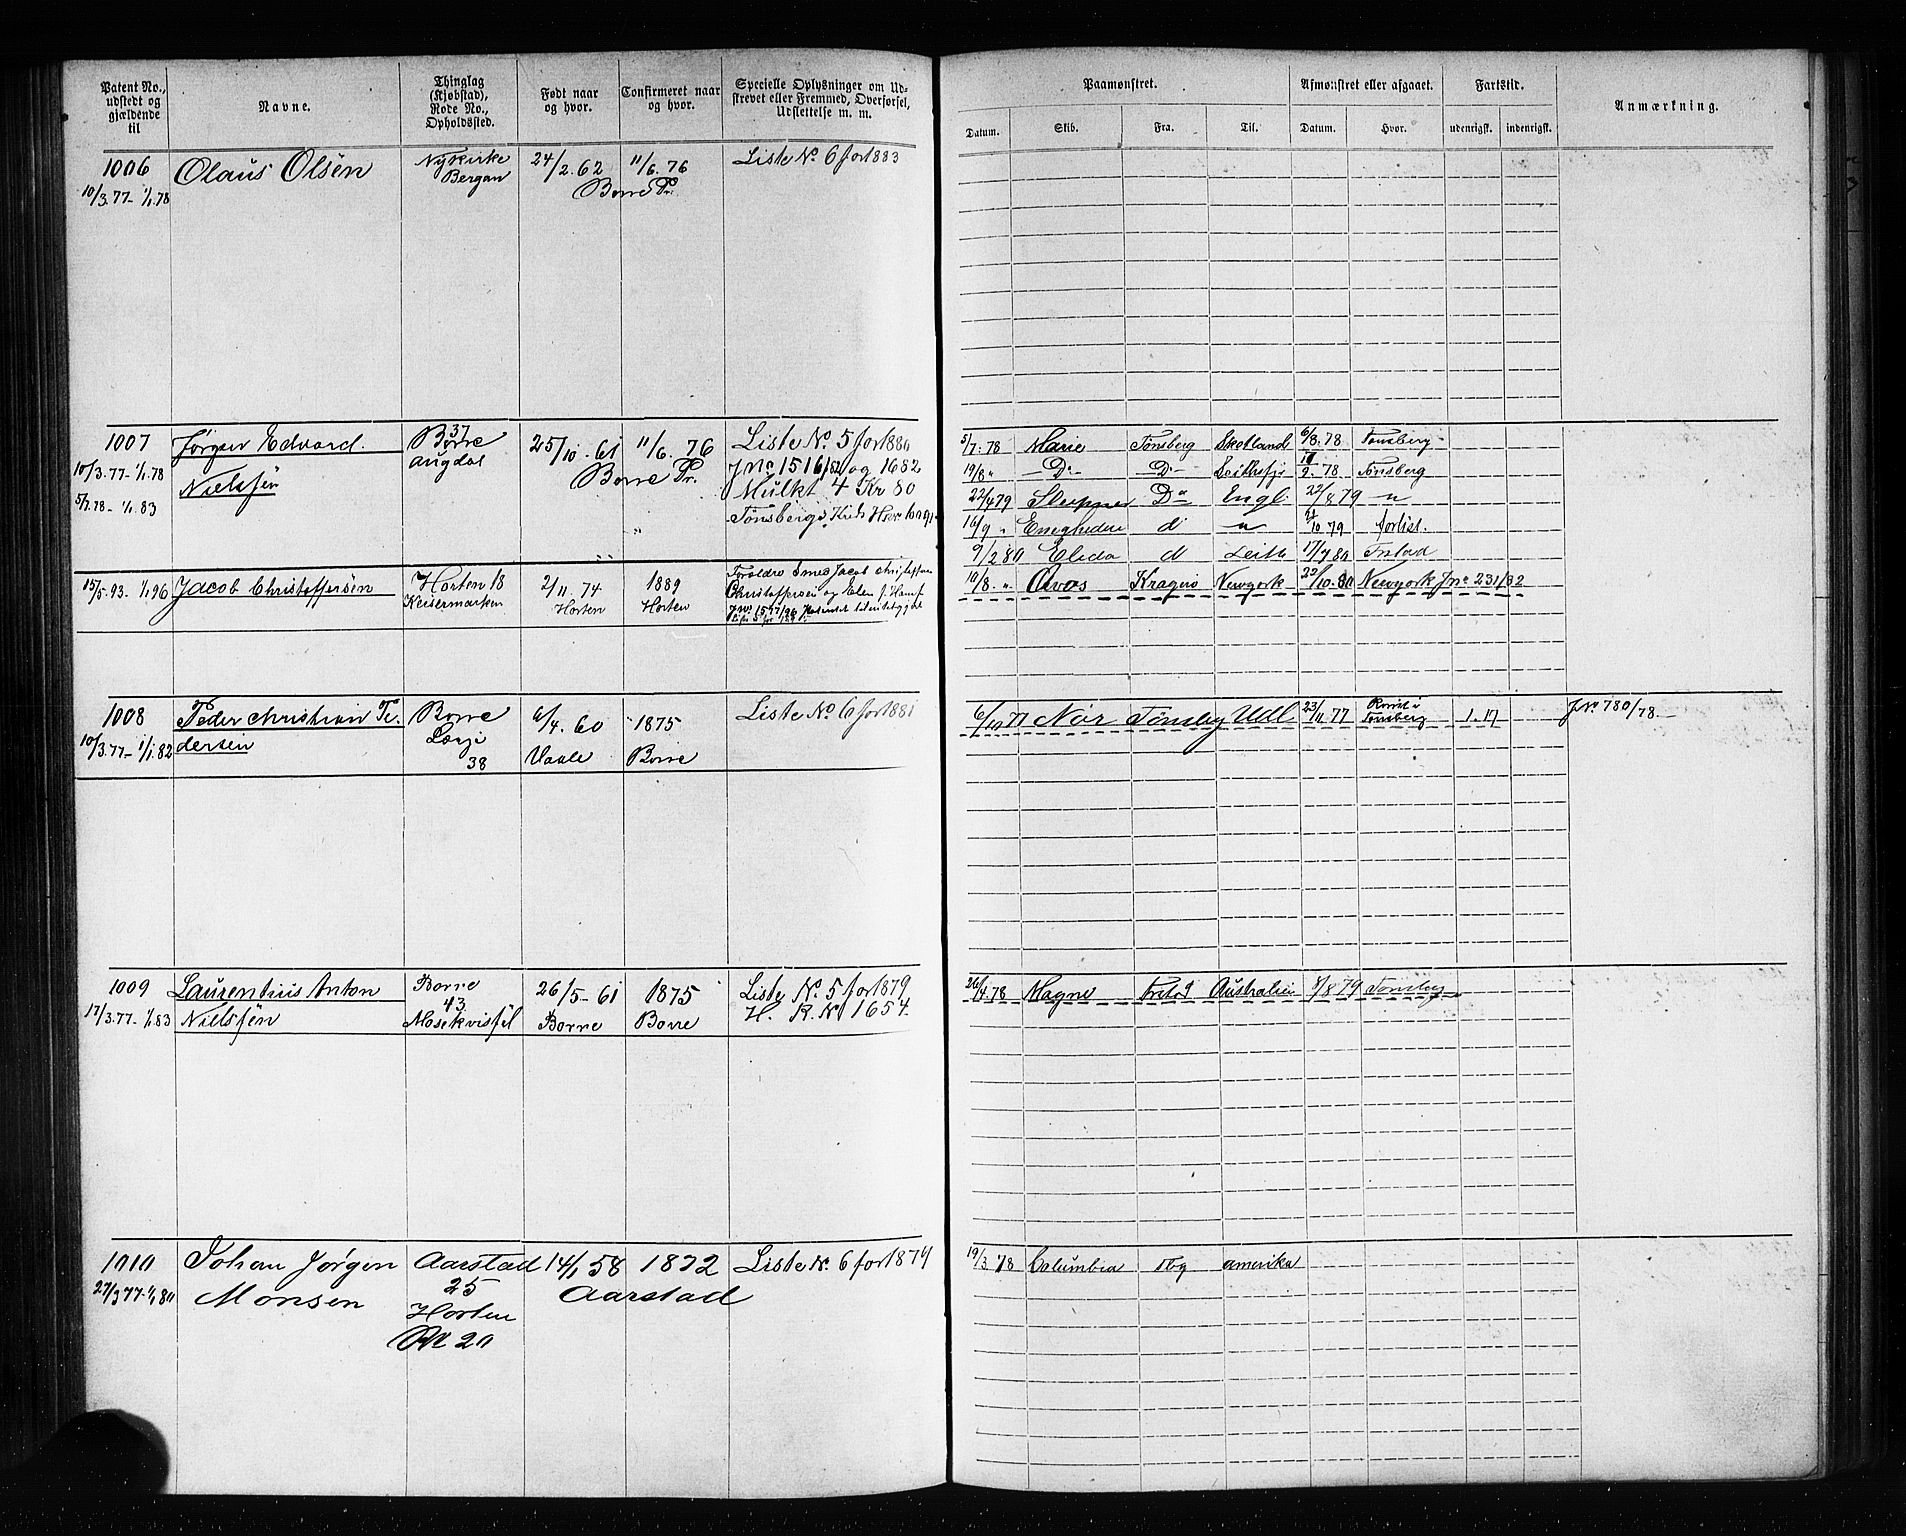 Patent No., udstedt og gjældende til
Navne.
Thinglag (Kjøbstad), Rode No., Opholdssted.
Født naar og hvor.
Confirmeret naar og hvor.
Specielle Oplysninger om Udstrevet eller Fremmed, Overførsel, Udslettelse m. m.
Paamønstret.
Datum.
Skib.
Fra.
Til.
Afmønstret eller afgaaet.
Datum.
Hvor.
Fartstid.
udenrigsk.
indenrigsk.
Anmærkning.
1006 Olaus Olsen Nykirke 24/2.62 11/6.76 Liste No. 6 for 1883
10/3.77-1/1.78 Bergan Borre Pr.
1007 Jørgen Edvard 37 Borre 25/10.61 11/6.76 Liste No. 5 for 1880
10/3.77-1/1.78 Nielsen augdal Borre Pr. Jno 1516/82 og 1682
5/7.78-1/1.83 Mulkt 4 Kr 80
Tønsbergs
5/7.78 Marie Tønsberg Skotland 6/8.78 Tønsberg
19/8 " D- D- 9.78 Tønsberg
22/4 79 Sleipner Do Engl 22/8 79 "
16/9 " d " 10 79 forlist.
9/2 80 Elida d Leith 17/7 80 Frstad
10/8. " Kragerø Newyork 22/10.80 Newyork Jno 231/82
15/5.93. 1/1 96 Jacob Christoffersen Horten 18 2/11.74 1889
Keisermarken Horten Horten
Christoffersen og
1008 Peder Christian Pe- Borre 6/4.60 1875 Liste No. 6 for 1881
10/3.77-1/1.82 dersen 38 Vaale Borre
6/10 77 Nor Tønsbg Udl 23/11.77 Tønsberg 1.17 J No 780/78.
1009 Laurentius Anton Borre 26/5-61 1875 Liste No. 5 for 1879
17/3.77-1/1.83 Nielsen 43 Borre Borre H. R. No 1654.
26/4.78 Magne Frstad Australien 8/8 79 Tønsbg
1010 Johan Jørgen Aarstad 14/1 58 1872 Liste No. 6 for 1879
27/3 77-1/1 80 Monsen 25 Aarstad
Horten
20
19/3 78 Columbia Tbg amerika